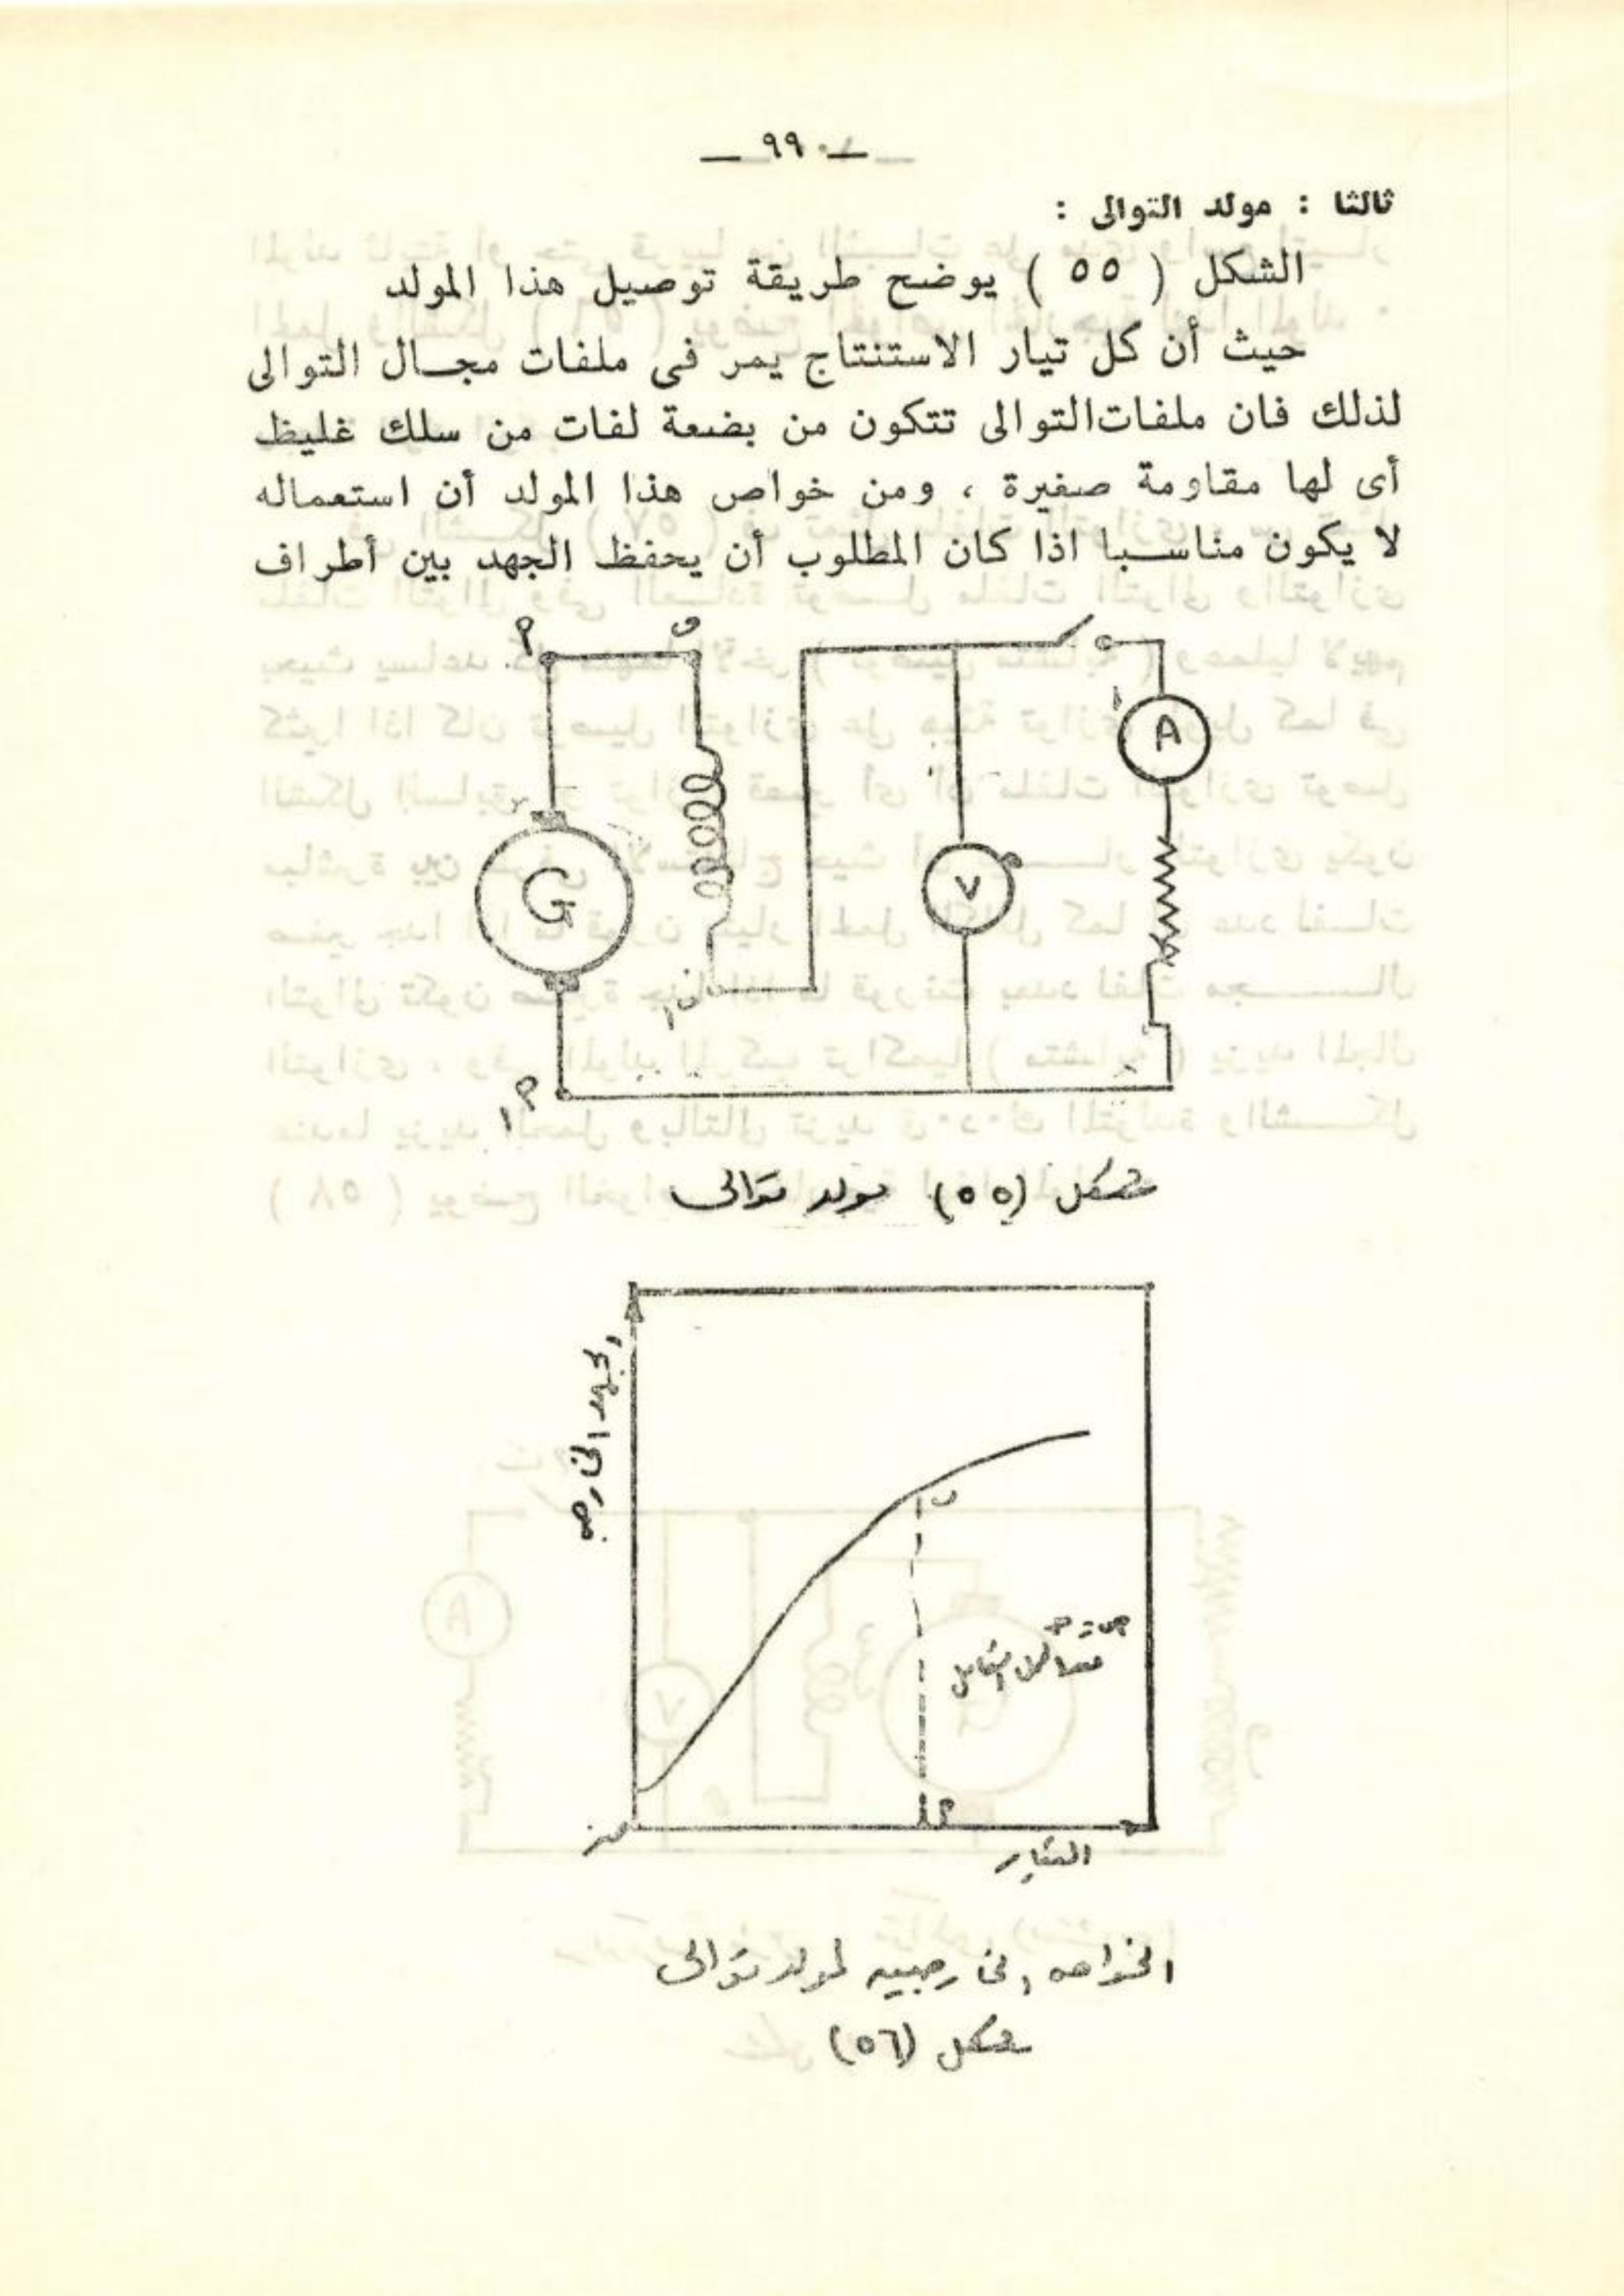 — ٩٩ —
ثالثا : مولد التوالى :
الشكل ( ٥٥ ) يوضح طريقة توصيل هذا المولد
حيث أن كل تيار الاستنتاج يمر فى ملفات مجـال التوالى
لذلك فان ملفات التوالى تتكون من بضعة لفات من سلك غليظ
أى لها مقاومة صغيرة ، ومن خواص هذا المولد أن استعماله
لا يكون مناسـبا اذا كان المطلوب أن يحفظ الجهد بين أطراف
A
G
V
شكل (٥٥) مولد توالى
الجهد الخارجى
ب
أ
صفر
التيار
الخواص الخارجيه لمولد توالى
شكل (٥٦)